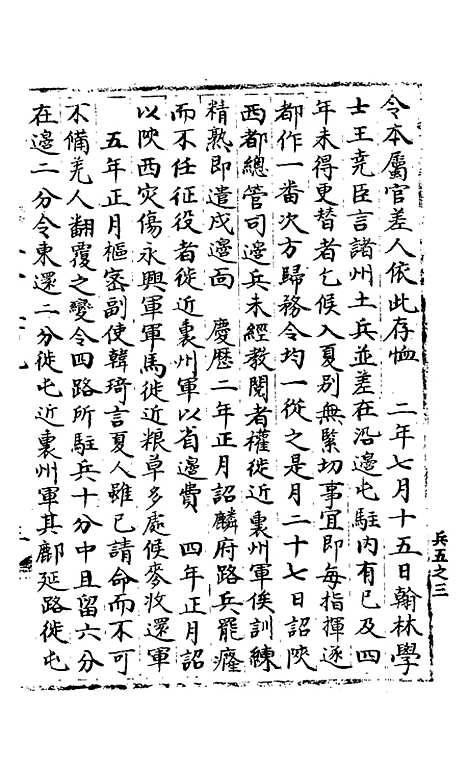 兵五之三
令本屬官差人依此存恤　二年七月十五日翰林學
士王堯臣言諸州土兵並差在沿邊屯駐内有已及四
年未得更替者乞候入夏别無緊切事宜即每指揮逐
都作一番次方歸務令均一從之是月二十七日詔陝
西都總管司邊兵未經教閲者權徙近裏州軍俟訓練
精熟即遣戍邊面　慶歷二年正月詔麟府路兵罷癃
而不任征役者徙近裏州軍以省邊費　四年正月詔
以陝西灾傷永興軍軍馬徙近粮草多處候麥收還軍
五年正月樞密副使韓琦言夏人雖已請命而不可
不備羌人翻覆之變令四路所駐兵十分中且留六分
在邊二分令東還二分徙屯近裏州軍其鄜延路徙屯